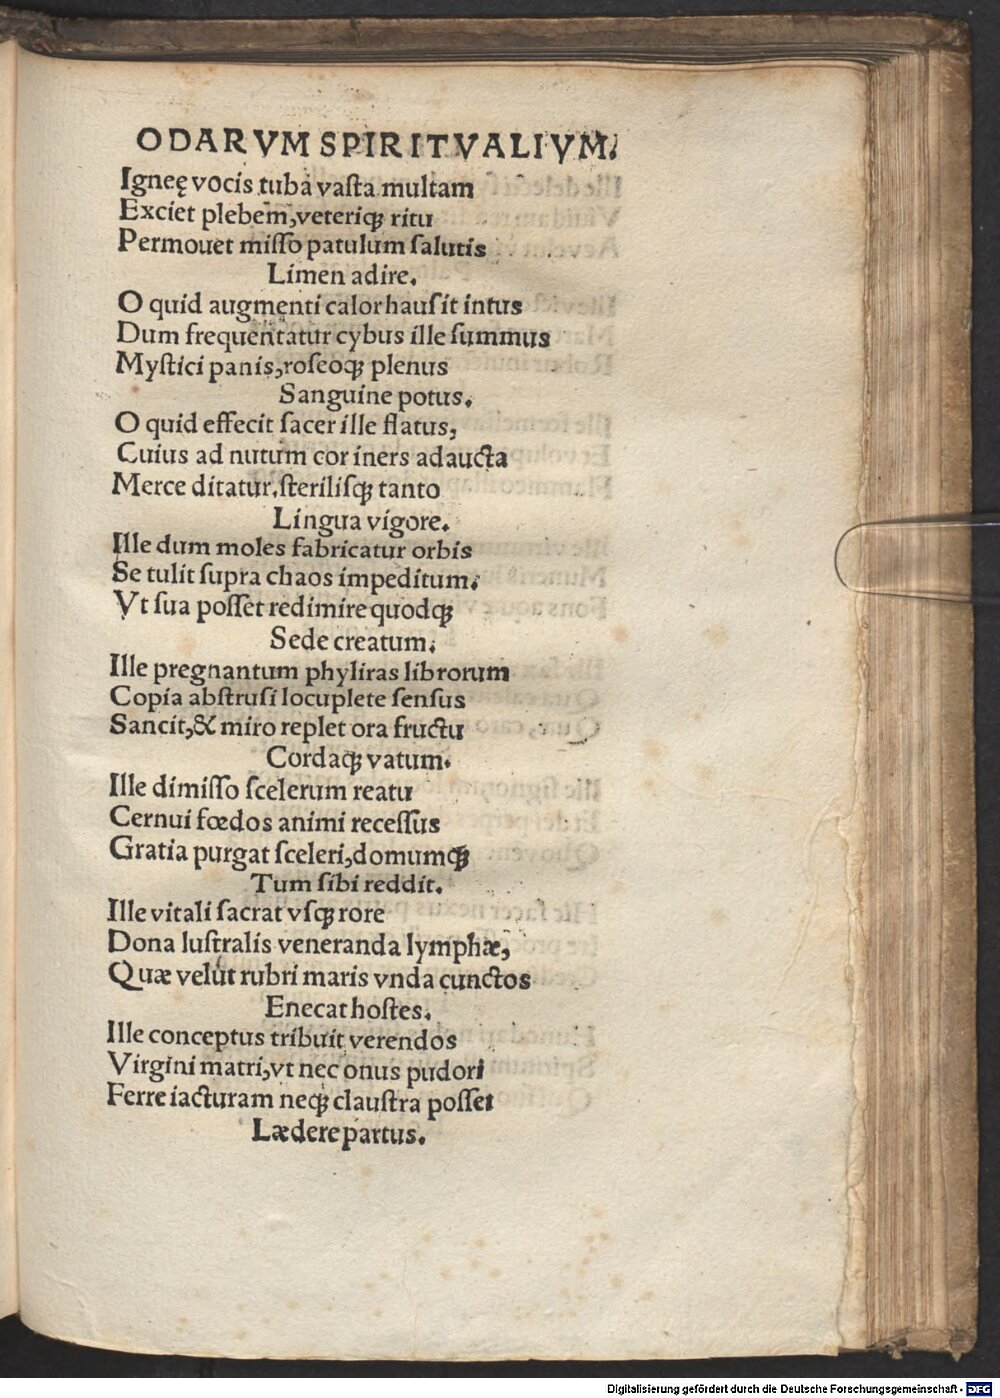 ODARVM SPIRITVALIVM.
Igneę vocis tuba vaſta multam
Exciet plebem,veteriqꝫ ritu
Permouet miſſo patulum ſalutis
Limen adire.
O quid augmenti calor hauſit intus
Dum frequentatur cybus ille ſummus
Myſtici panis,roſeoqꝫ plenus
Sanguine potus.
O quid effecit ſacer ille flatus,
Cuius ad nutum cor iners adaucta
Merce ditatur,ſteriliſqꝫ tanto
Lingua vigore.
Ille dum moles fabricatur orbis
Se tulit ſupra chaos impeditum.
Vt ſua poſſet redimire quodqꝫ
Sede creatum.
Ille pregnantum phyliras librorum
Copia abſtruſi locuplete ſenſus
Sancit,& miro replet ora fructu
Cordaqꝫ vatum.
Ille dimiſſo ſcelerum reatu
Cernui fœdos animi receſſus
Gratia purgat ſceleri,domumqꝫ
Tum ſibi reddit.
Ille vitali ſacrat vſqꝫ rore
Dona luſtralis veneranda lymphæ,
Quæ velut rubri maris vnda cunctos
Enecat hoſtes.
Ille conceptus tribuit verendos
Virgini matri,vt nec onus pudori
Ferre iacturam neqꝫ clauſtra poſſet
Lædere partus.
Digitalisierung gefördert durch die Deutsche Forschungsgemeinschaft - DFG